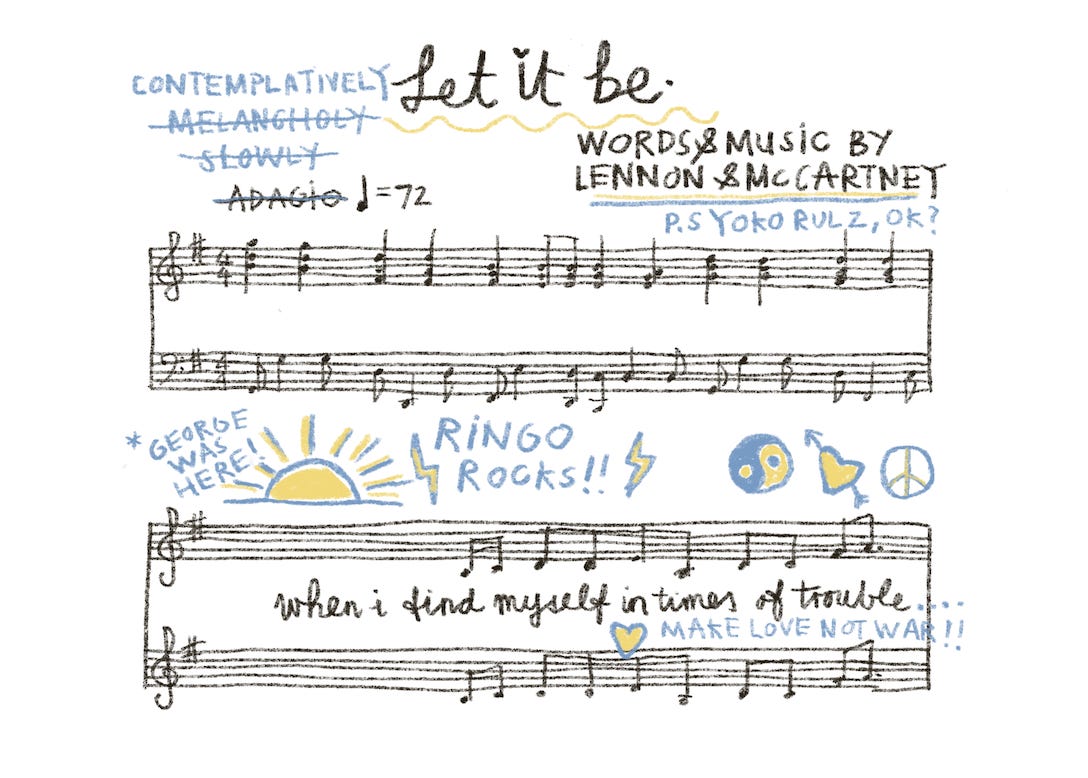 Let it be.
CONTEMPLATIVELY
MELANCHOLY
SLOWLY
ADAGIO ♩=72
WORDS & MUSIC BY
LENNON & McCARTNEY
P.S YOKO RULZ, OK?
4
4
4
4
* GEORGE
WAS
HERE!
RINGO
ROCKS!!
when i find myself in times of trouble....
MAKE LOVE NOT WAR!!